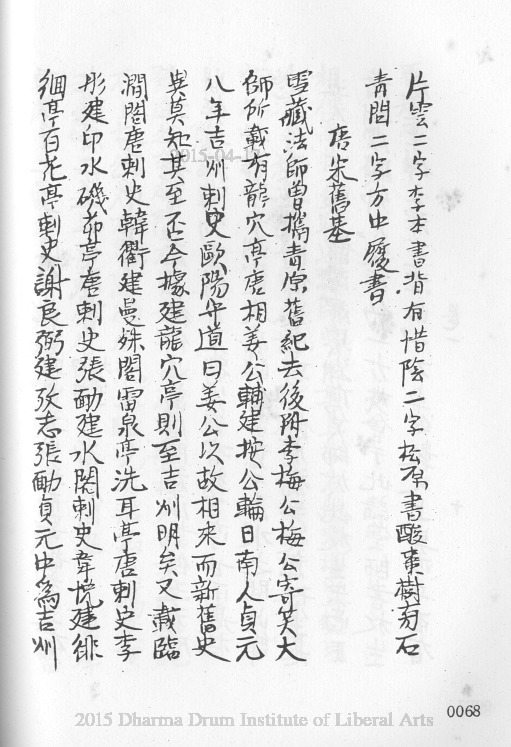 片雲二字李本書背有惜陰二字松原書酸棗樹旁石
青閣二字方中履書
唐宋舊基
雪藏法師曾攜青原舊紀去後附李梅公梅公寄笑大
師所載有龍穴亭唐相姜公輔建按公輪日南人貞元
八年吉州刺史歐陽守道日姜公以故相來而新舊史
異莫知其至否今據建龍穴亭則至吉州明矣又載臨
澗閣唐刺史韓衢建曼殊閣雷泉亭洗耳亭唐刺史李
彤建印水磯茆亭唐刺史張勔建水閣刺史韋悅建徘
徊亭百花亭刺史謝良弼建攷志張勔貞元中為吉州
2015-04-17
2015 Dharma Drum Institute of Liberal Arts
0068